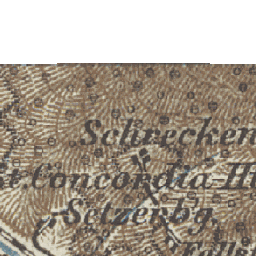 Schrecken
St. Concordia-Hü
Setzenbg.
Falls